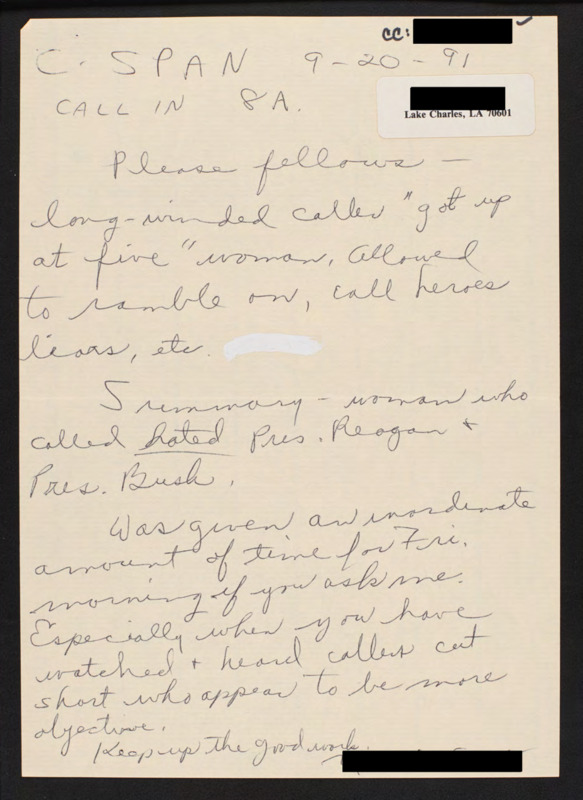 cc:
C-SPAN 9-20-91
CALL IN 8A.
Lake Charles, LA 70601
Please fellows —
long-winded caller "got up
at five" woman. Allowed
to ramble on, call heroes
liars, etc.
Summary - woman who
called hated Pres. Reagan &
Pres. Bush.
Was given an inordinate
amount of time for Fri.
morning if you ask me.
Especially when you have
watched & heard callers cut
short who appear to be more
objective.
Keep up the good work.